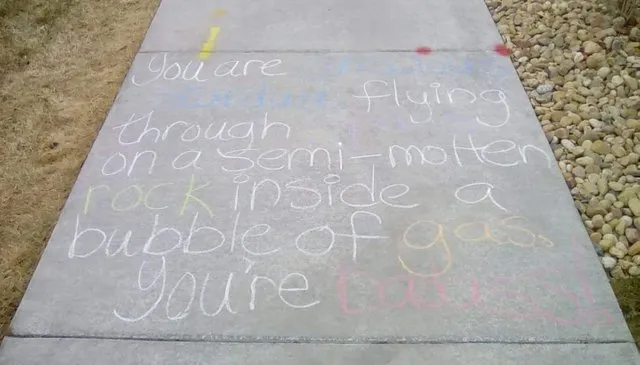 You are
flying
through
on a semi-molten
rock inside a
bubble of gas.
You're